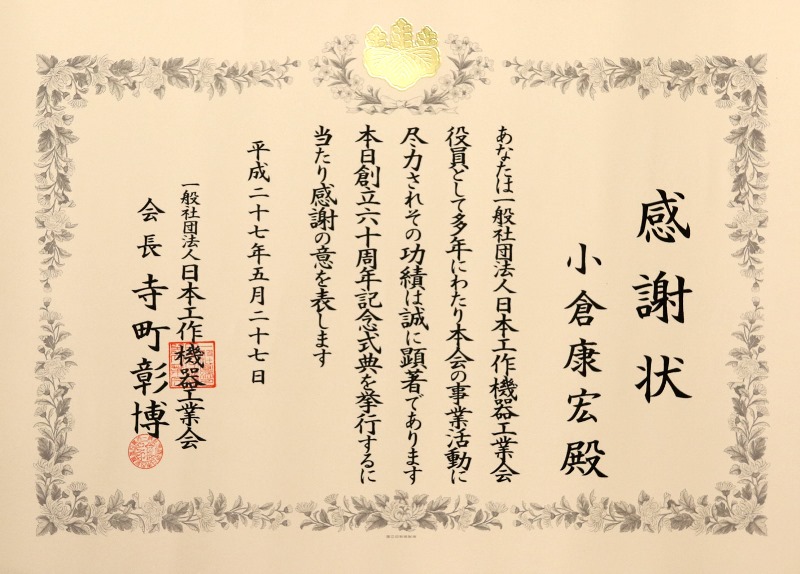 感謝状
小倉康宏殿
あなたは一般社団法人日本工作機器工業会
役員として多年にわたり本会の事業活動に
尽力されその功績は誠に顕著であります
本日創立六十周年記念式典を挙行するに
当たり感謝の意を表します
平成二十七年五月二十七日
一般社団法人日本工作機器工業会
会長寺町彰博